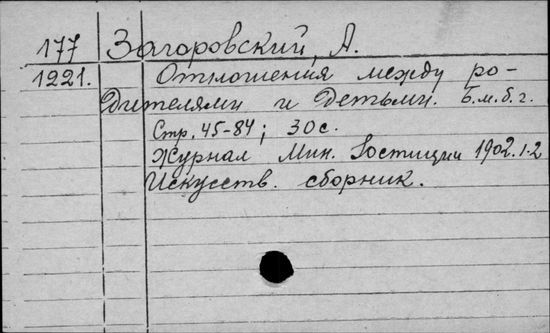 177 Загоровский, А.
1221. Отношения между ро-
дителями и детьми. Б.м.б.г.
Стр. 45-84; 30с.
Журнал Мин. Юстиции 1902.1.2
Искусств. сборник.